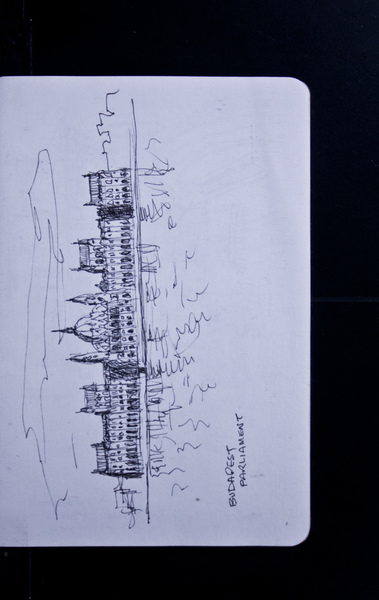 BUDAPEST
PARLIAMENT